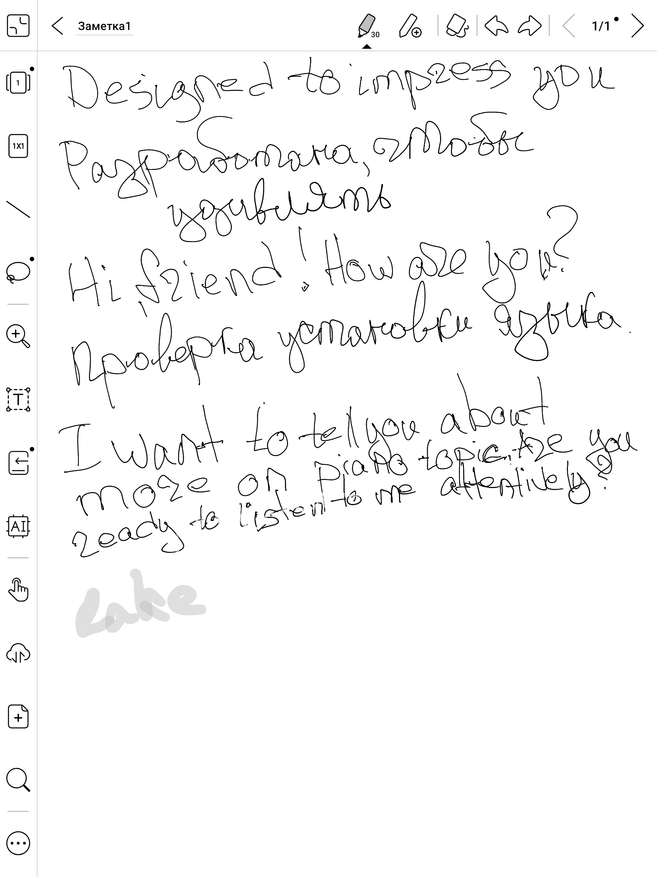 Заметка1
30
1/1
1
1X1
T
AI
Designed to impress you
Разработана, чтобы
удивлять
Hi, friend! How are you?
Проверка установки языка.
I want to tell you about
more on piano topic. Are you
ready to listen to me attentively?
Lake